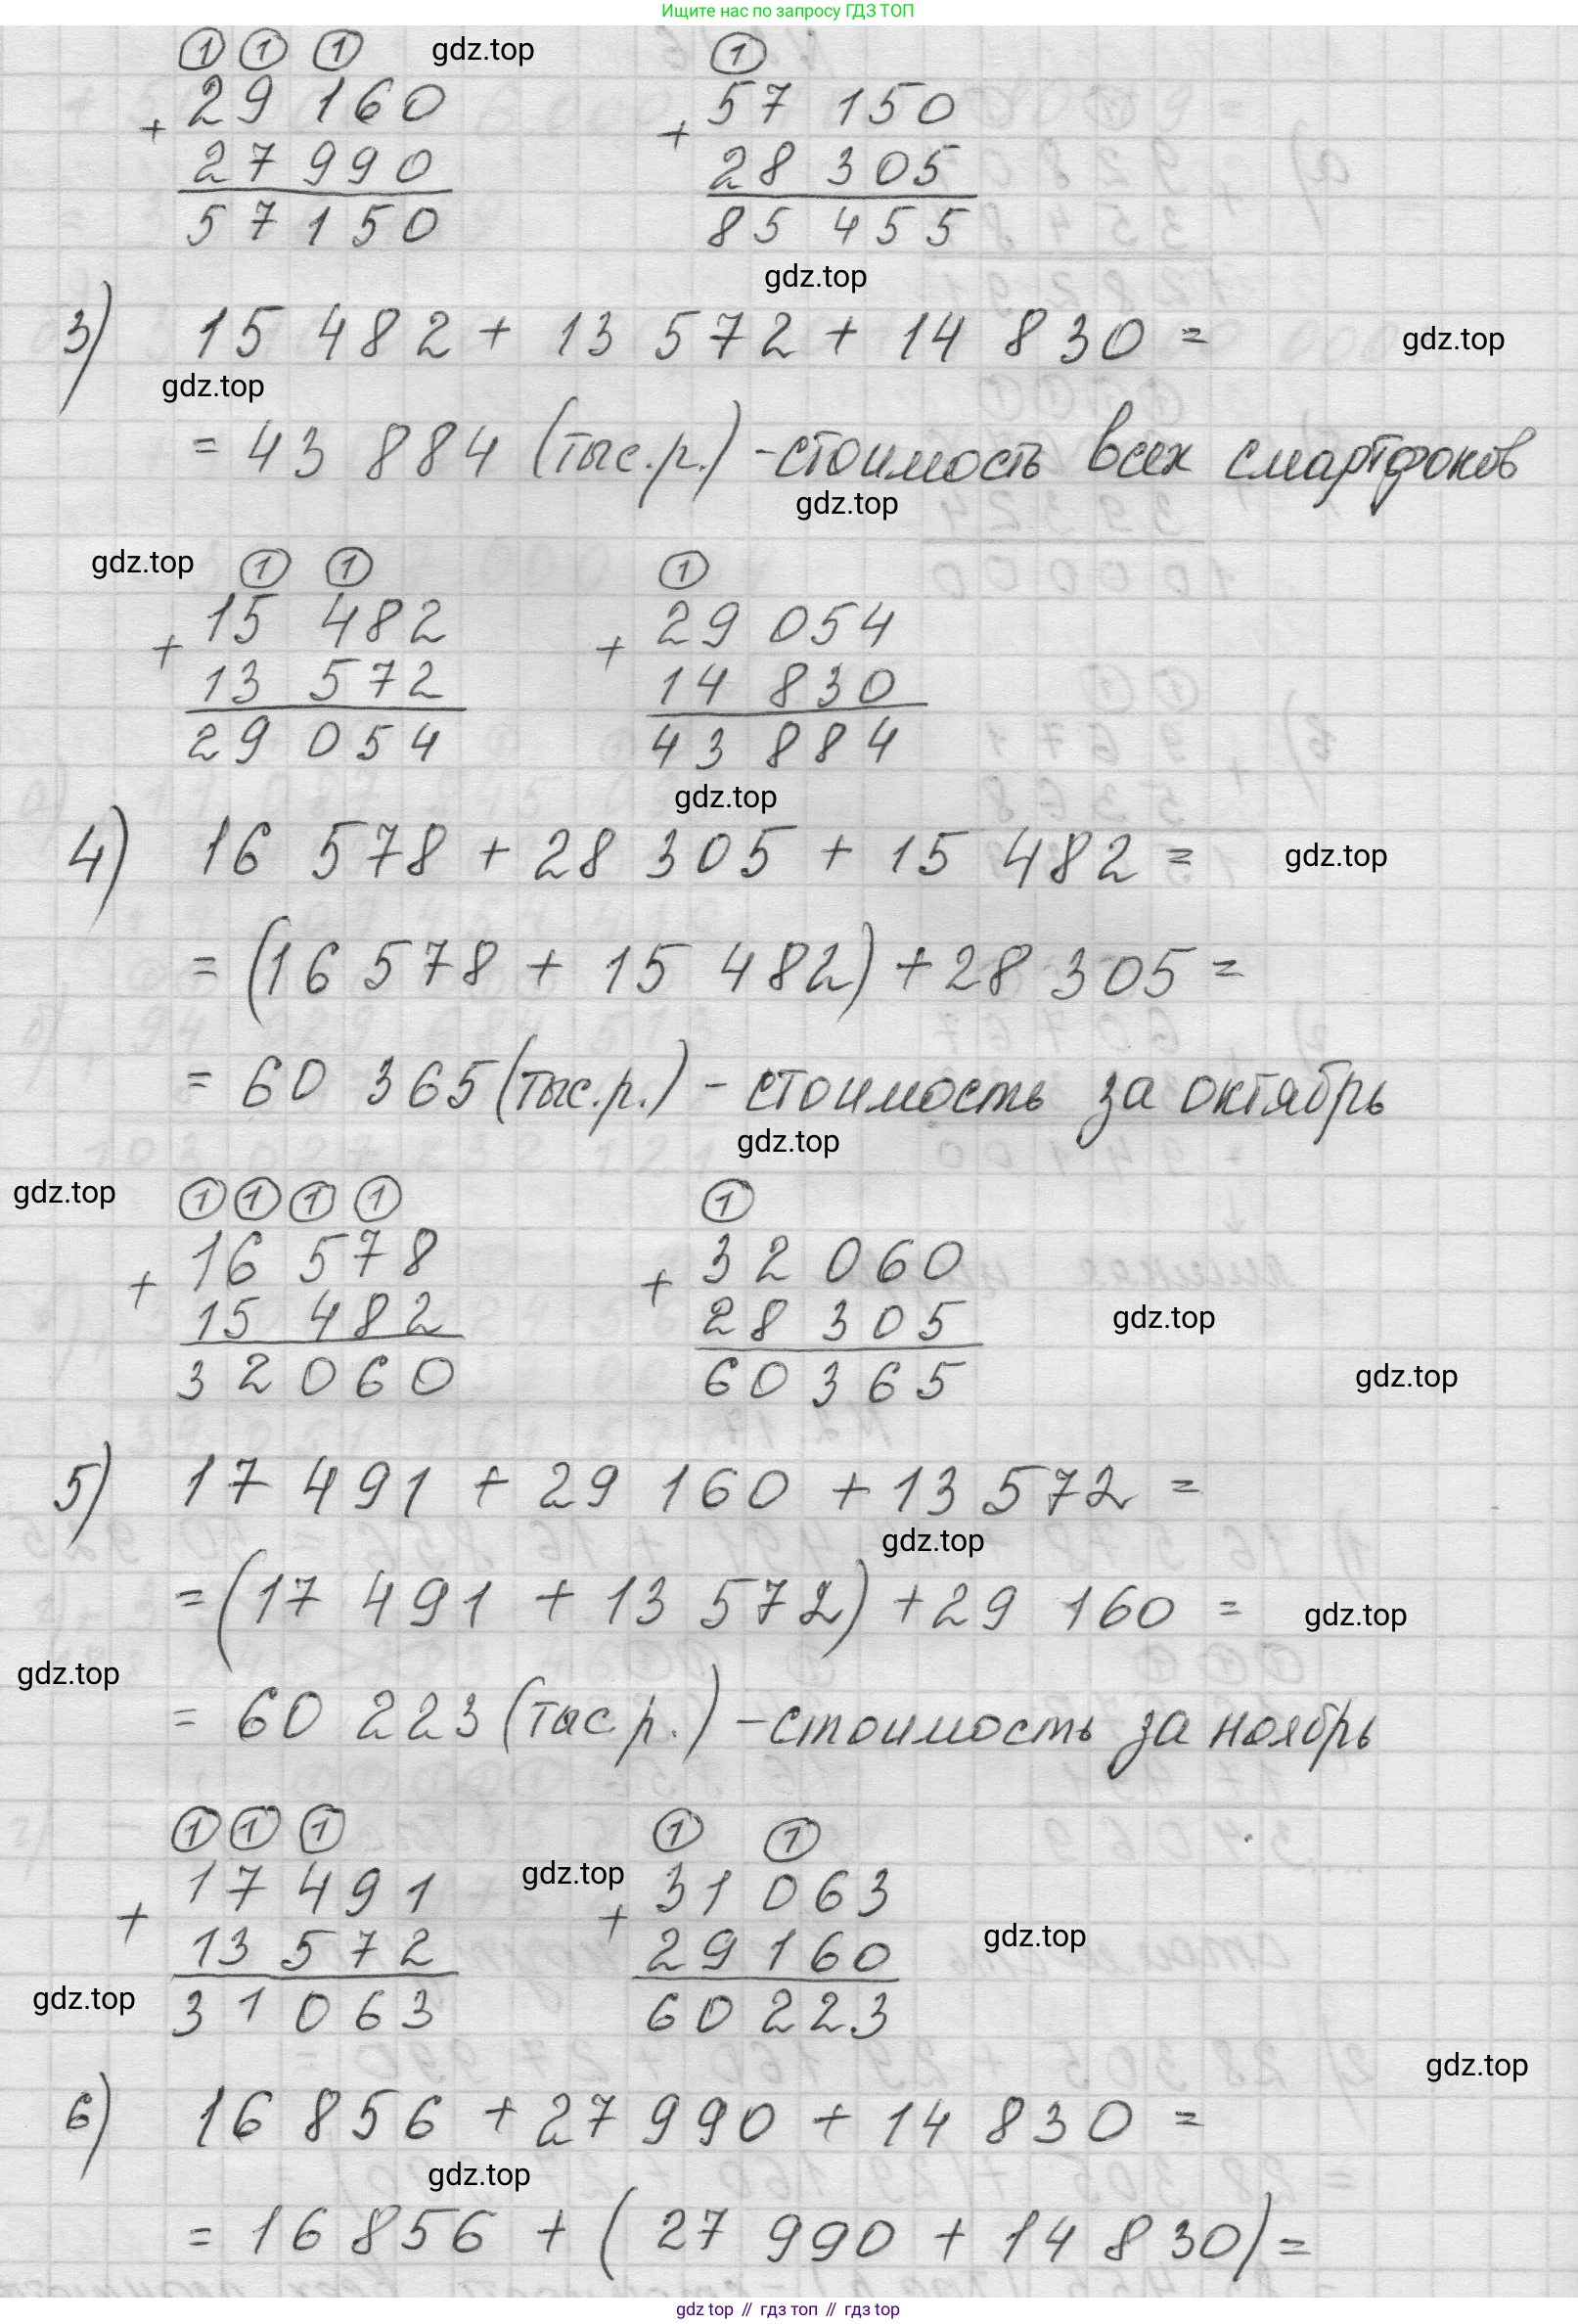 Ищите нас по запросу ГДЗ ТОП
① ① ① gdz.top ①
29 160 57 150
+ +
27 990 28 305
57 150 85 455
gdz.top
3) 15 482 + 13 572 + 14 830 = gdz.top
gdz.top
= 43 884 (тыс.р.) - стоимость всех смартфонов
gdz.top
gdz.top ① ① ①
15 482 29 054
+ +
13 572 14 830
29 054 43 884
gdz.top
4) 16 578 + 28 305 + 15 482 = gdz.top
= (16 578 + 15 482) + 28 305 =
= 60 365 (тыс.р.) - стоимость за октябрь
gdz.top
gdz.top ① ① ① ① ①
16 578 32 060
+ +
15 482 28 305 gdz.top
32 060 60 365 gdz.top
5) 17 491 + 29 160 + 13 572 =
gdz.top
= (17 491 + 13 572) + 29 160 = gdz.top
gdz.top
= 60 223 (тыс р.) - стоимость за ноябрь
① ① ① ① ①
17 491 gdz.top 31 063
+ +
13 572 29 160 gdz.top
gdz.top 31 063 60 223
gdz.top
6) 16 856 + 27 990 + 14 830 =
gdz.top
= 16 856 + (27 990 + 14 830) =
gdz top // гдз топ // гдз top